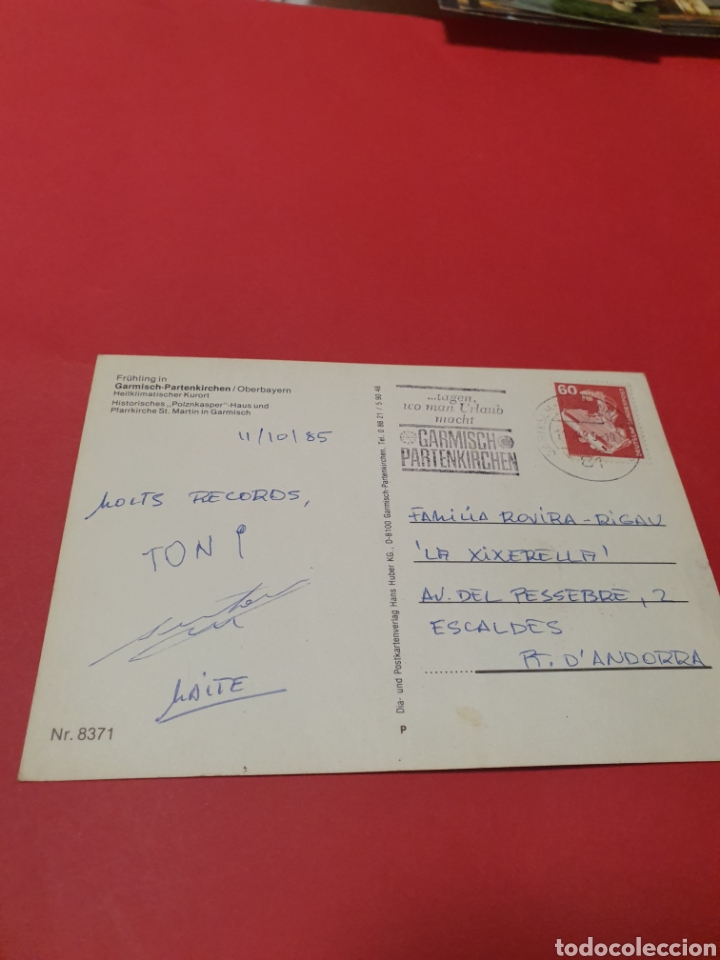 Frühling in
Garmisch-Partenkirchen/Oberbayern
Heilklimatischer Kurort
Historisches „Polznkasper"-Haus und
Pfarrkirche St. Martin in Garmisch
11/10/85
MOLTS RECORDS,
TONI
MAITE
Nr. 8371
Dia- und Postkartenverlag Hans Huber KG., D-8100 Garmisch-Partenkirchen, Tel. 0 88 21 / 5 90 46
P
...tagen,
wo man Urlaub
macht
GARMISCH
PARTENKIRCHEN
60
81
FAMILIA ROVIRA-RIGAU
'LA XIXERELLA'
AV. DEL PESSEBRE, 2
ESCALDES
P. D'ANDORRA
todocoleccion